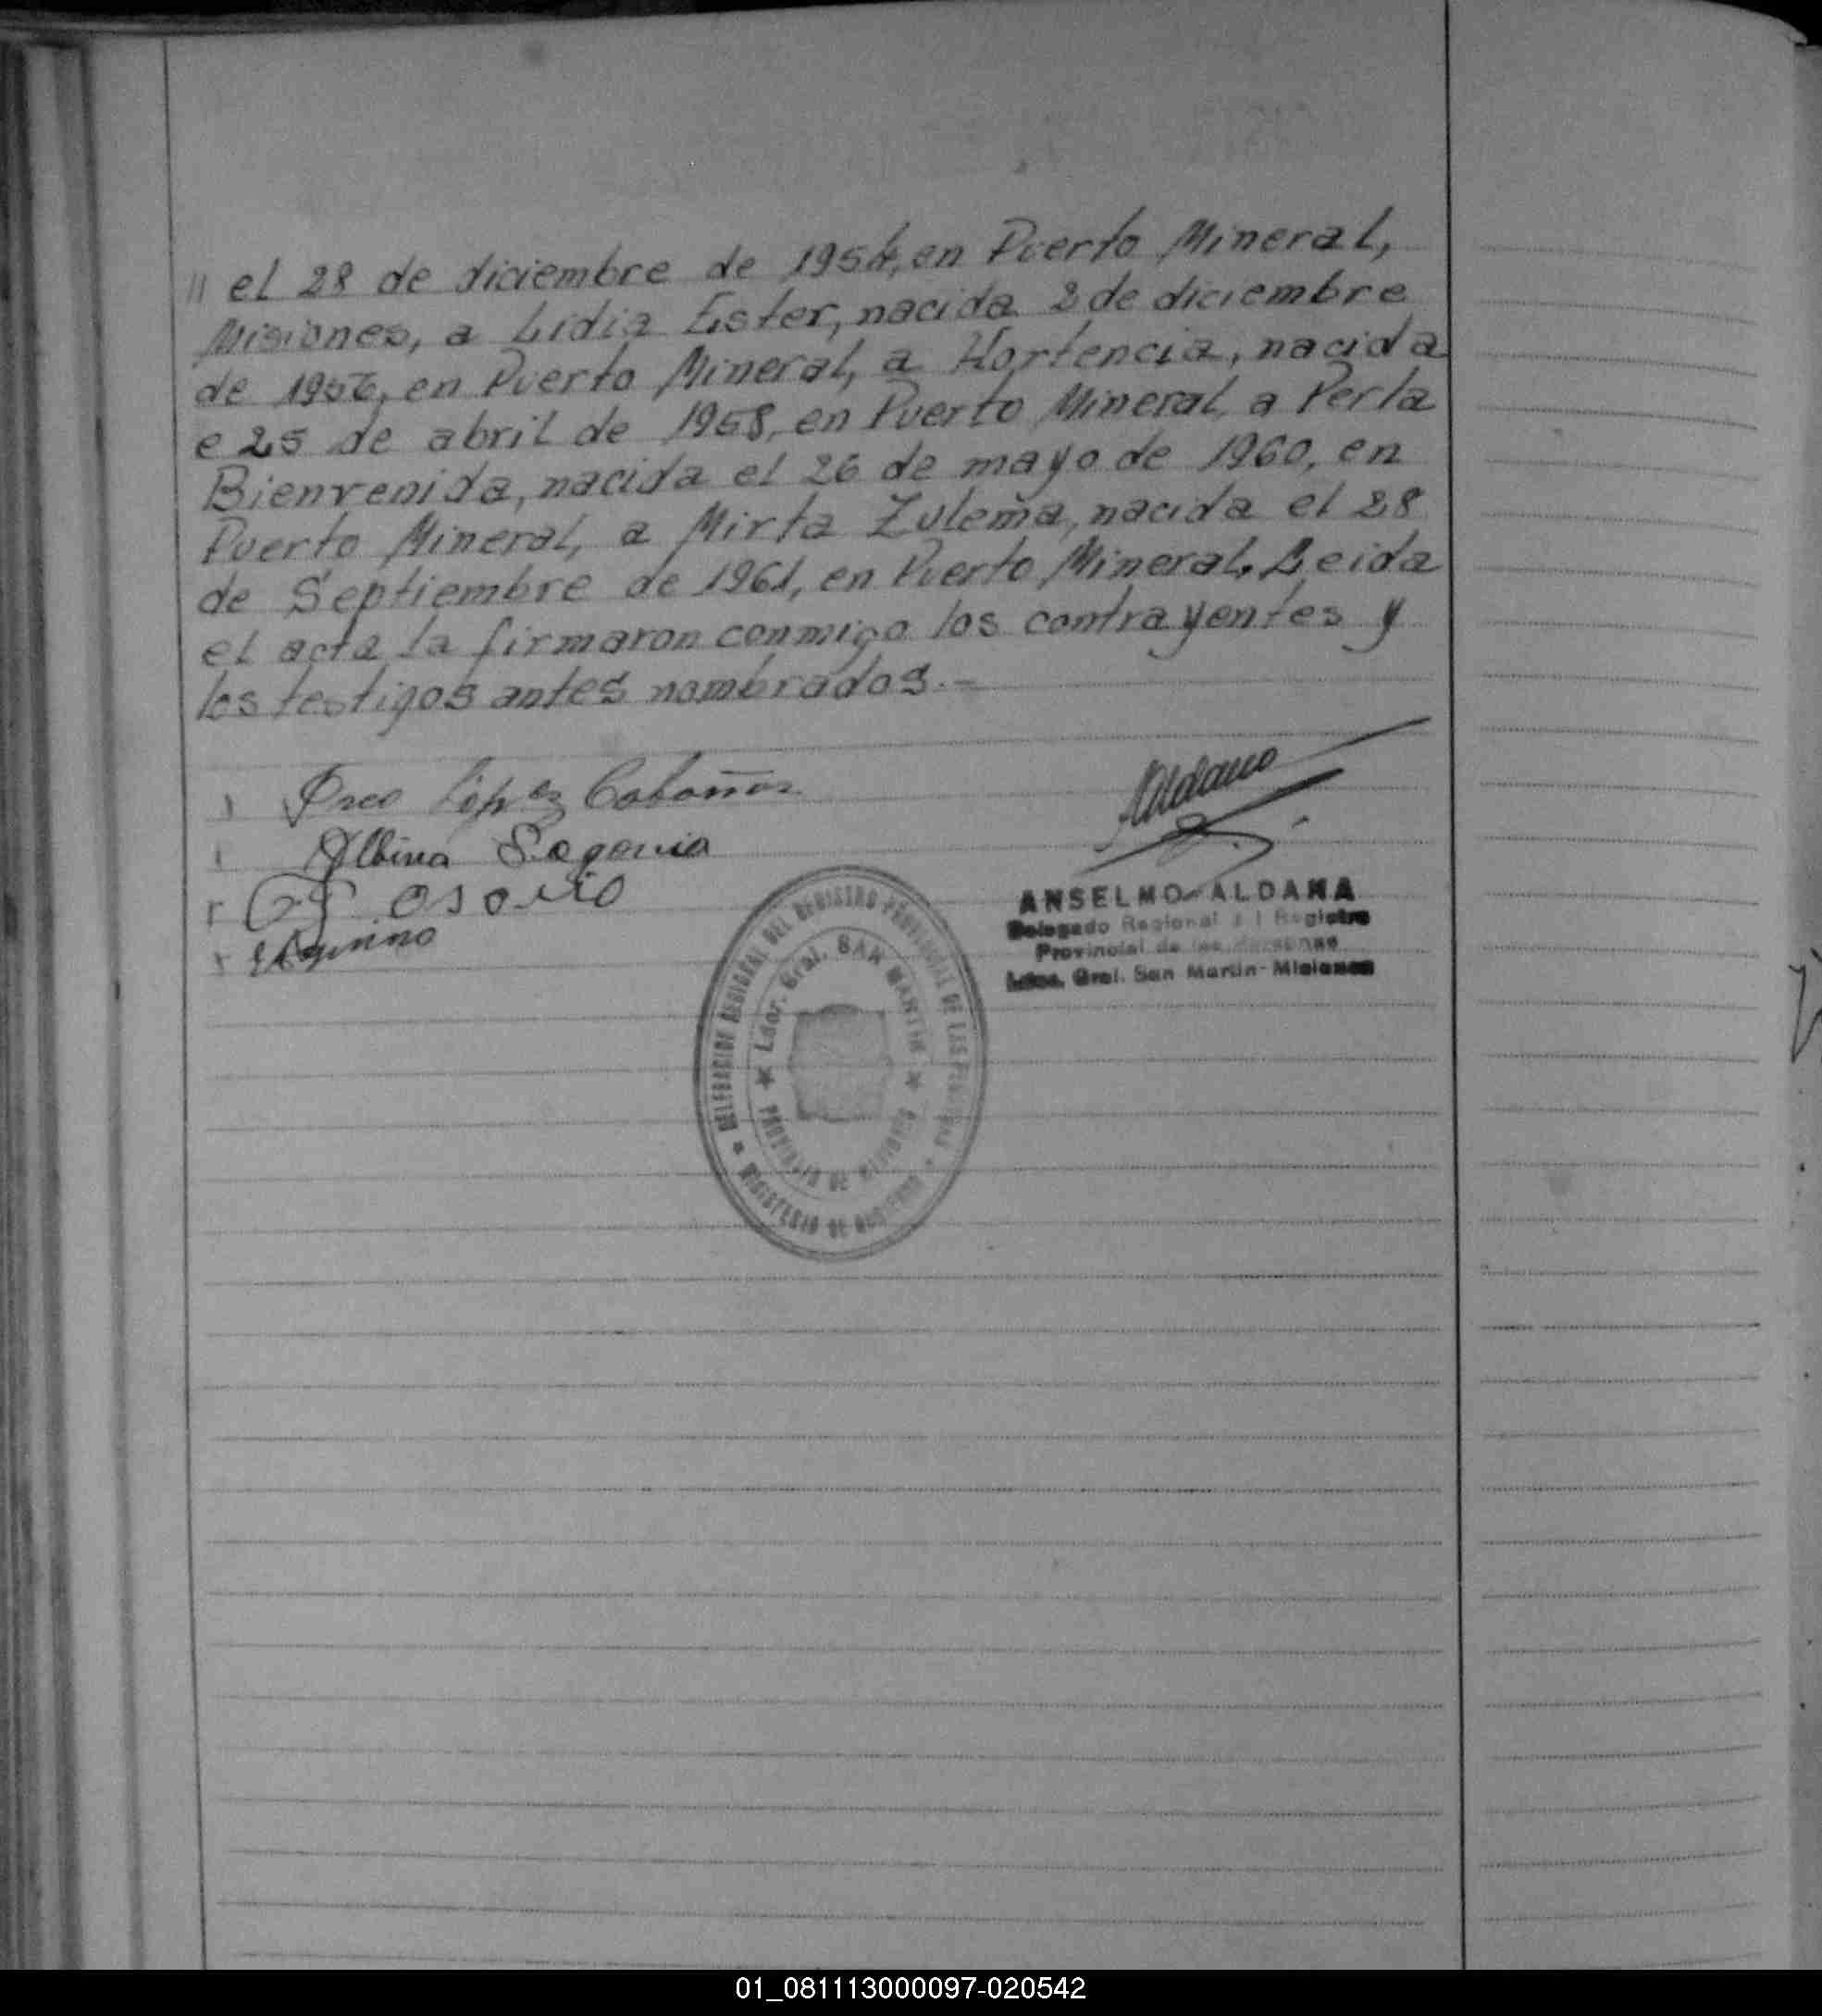 // el 28 de diciembre de 1954, en Puerto Mineral,
Misiones, a Lidia Ester, nacida 2 de diciembre
de 1956, en Puerto Mineral, a Hortencia, nacida
e 25 de abril de 1958, en Puerto Mineral, a Perla
Bienvenida, nacida el 26 de mayo de 1960, en
Puerto Mineral, a Mirta Zulema, nacida el 28
de Septiembre de 1961, en Puerto Mineral. Leida
el acta la firmaron conmigo los contrayentes y
los testigos antes nombrados.-
López Cabañas
Albina Segovia
Osorio
Aquino
Aldana
ANSELMO ALDANA
Delegado Regional del Registro
Provincial de las Personas
Ldor. Gral. San Martin - Misiones
DELEGACION REGIONAL DEL REGISTRO PROVINCIAL DE LAS PERSONAS
Ldor. Gral. SAN MARTIN
PROVINCIA DE MISIONES
MINISTERIO DE GOBIERNO
01_081113000097-020542